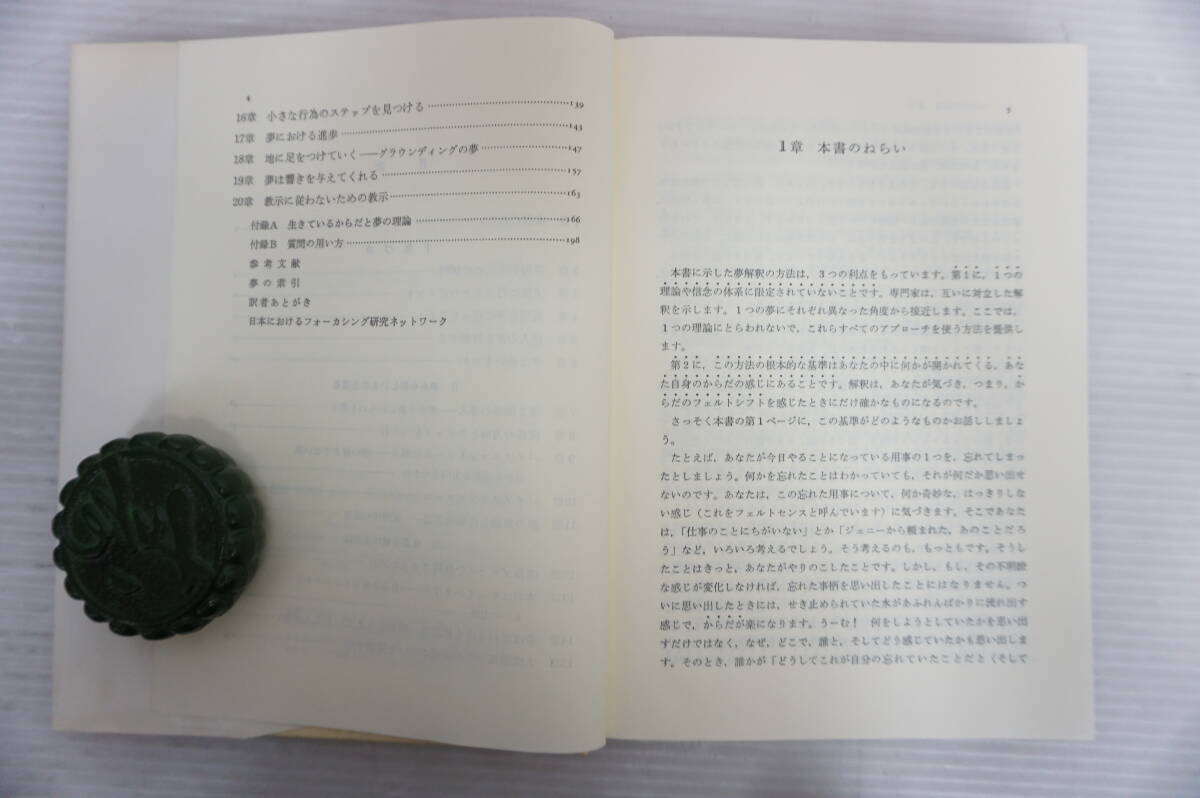 4
16章 小さな行為のステップを見つける……139
17章 夢における進歩……143
18章 地に足をつけていく——グラウンディングの夢……147
19章 夢は響きを与えてくれる……157
20章 教示に従わないための教示……163
付録A 生きているからだと夢の理論……166
付録B 質問の用い方……198
参考文献
夢の索引
訳者あとがき
日本におけるフォーカシング研究ネットワーク
1章 本書のねらい
本書に示した夢解釈の方法は，3つの利点をもっています。第1に，1つの
理論や信念の体系に限定されていないことです。専門家は，互いに対立した解
釈を示します。1つの夢にそれぞれ異なった角度から接近します。ここでは，
1つの理論にとらわれないで，これらすべてのアプローチを使う方法を提供し
ます。
第2に，この方法の根本的な基準はあなたの中に何かが開かれてくる，あな
た自身のからだの感じにあることです。解釈は，あなたが気づき，つまり，か
らだのフェルトシフトを感じたときにだけ確かなものになるのです。
さっそく本書の第1ページに，この基準がどのようなものかお話ししましょ
う。
たとえば，あなたが今日やることになっている用事の1つを，忘れてしまっ
たとしましょう。何かを忘れたことはわかっていても，それが何だか思い出せ
ないのです。あなたは，この忘れた用事について，何か奇妙な，はっきりしな
い感じ（これをフェルトセンスと呼んでいます）に気づきます。そこであなた
は，「仕事のことにちがいない」とか「ジェニーから頼まれた，あのことだろ
う」など，いろいろ考えるでしょう。そう考えるのも，もっともです。そうし
たことはきっと，あなたがやりのこしたことです。しかし，もし，その不明瞭
な感じが変化しなければ，忘れた事柄を思い出したことにはなりません。つ
いに思い出したときには，せき止められていた水があふれんばかりに流れ出す
感じで，からだが楽になります。うーむ！ 何をしようとしていたかを思い出
すだけではなく，なぜ，どこで，誰と，そしてどう感じていたかも思い出しま
す。そのとき，誰かが「どうしてこれが自分の忘れていたことだと（そして